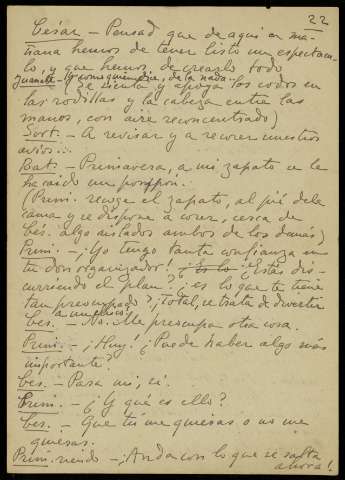 22
César - Pensad que de aquí en ma-
ñana hemos de tener listo un espectácu-
lo, y que hemos de crearlo todo
Juanete - Por consiguiente, de la nada..
(Se sienta y apoya los codos en
las rodillas y la cabeza entre las
manos, con aire reconcentrado)
Sort. - A revisar y a recorer nuestros
Bat. - Primavera, a mi zapato se le
ha caído un pompón.
(Prim. recoge el zapato, al pié de la
cama y se dispone a coser, cerca de
Ces. algo aislados ambos de los demás)
Prim. - ¡Yo tengo tanta confianza en
tu don organizador! ¿Estás dis-
curriendo el plan? ¿es lo que te tiene
tan preocupado? ¡Total, se trata de divertir
Ces. - No. Me preocupa otra cosa.
Prim. - ¡Huy! ¿Puede haber algo más
importante?
Ces. - Para mí, sí.
Prim. - ¿Y qué es ello?
Ces. - Que tú me quieras o no me
quieras.
Prim. riendo - ¡Anda con lo que se salta
ahora!